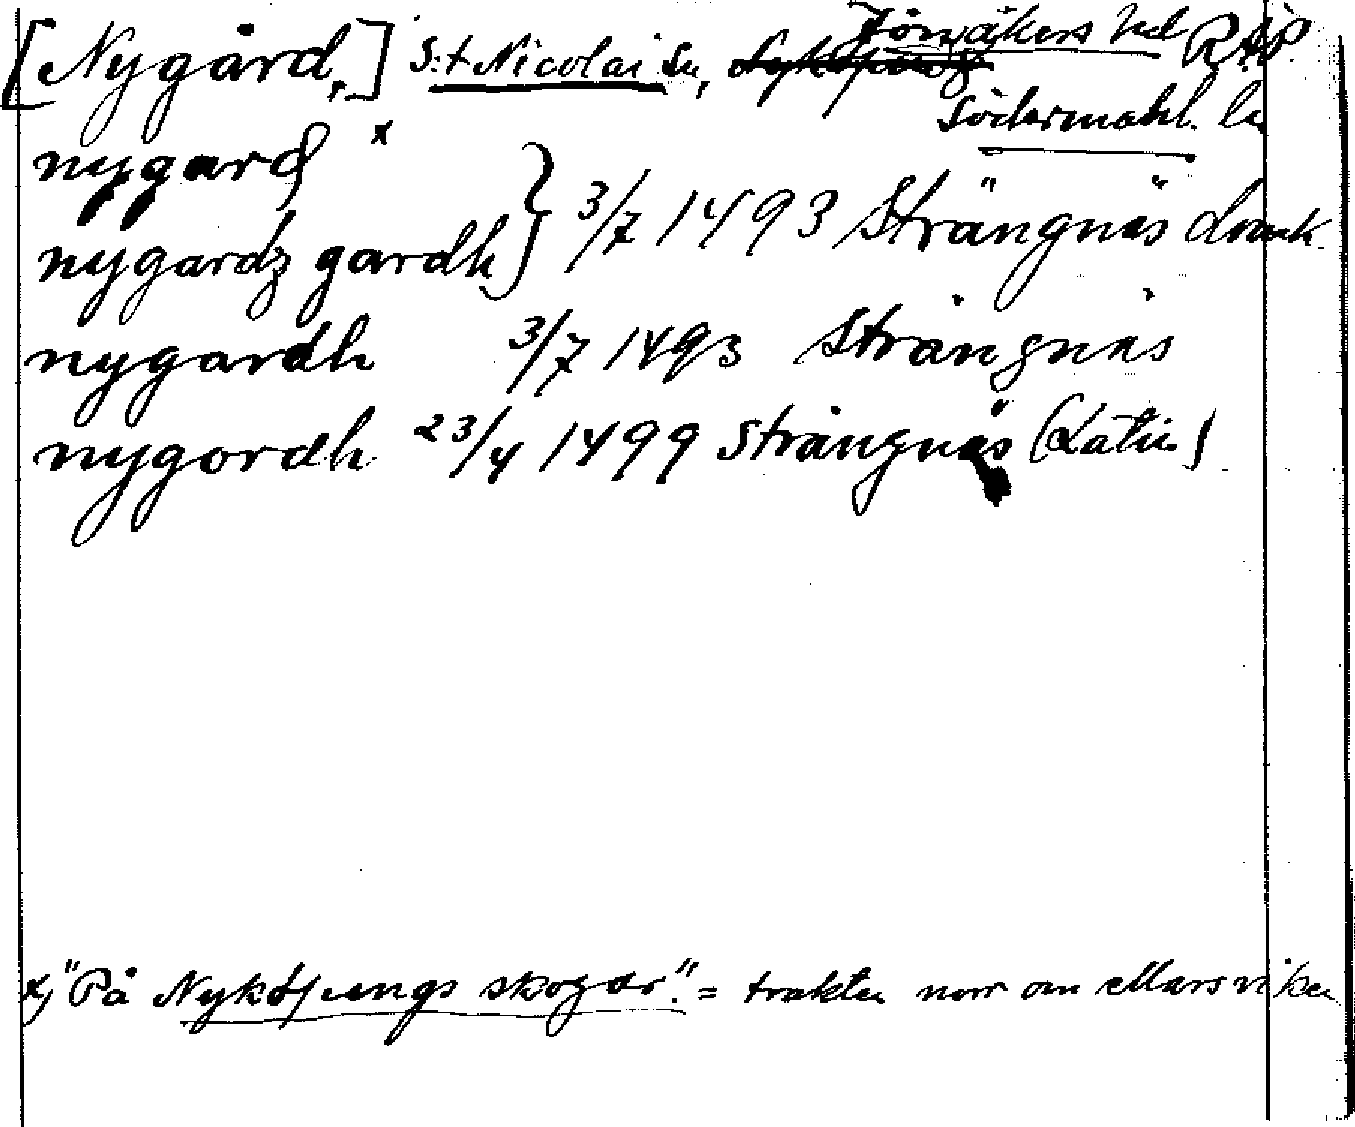 [Nygård,] S:t Nicolai sn, Jönåkers hd RAP
Södermanl. l.
nygard x
nygardz gardh } 3/7 1493 Strängnäs
nygardh 3/7 1493 Strängnäs
nygordh 23/4 1499 Strängnäs (Latin)
x) "På Nyköpungs skogar". = trakten norr om Marsviken